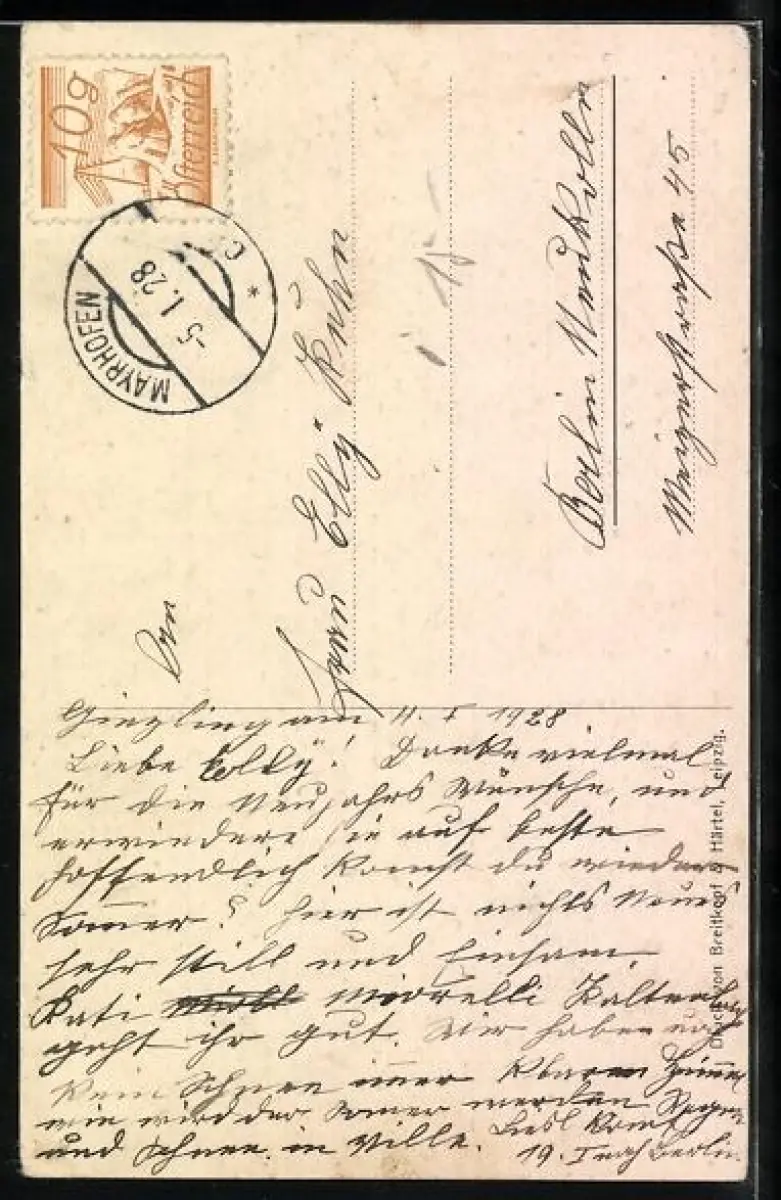 10g
Österreich
MAYRHOFEN
-5.1.28
An
Frau Elly Kuhn
Berlin Neukölln
Weigerstrasse 45
Ginzling am 4. I 1928
Liebe Elly! Danke vielmal
für die Neujahrs Wünsche, und
erwiedere sie auf beste
hoffendlich komst du wieder
Somer? hier ist nichts Neues
sehr still und Einsam.
Kati
geht ihr gut. Wir haben noch
kein Schnee imer klaren Himmel
wie wird der Somer werden Regen
und Schnee. in Ville. Liesl komt
19. I nach Berlin.
Druck von Breitkopf & Härtel, Leipzig.